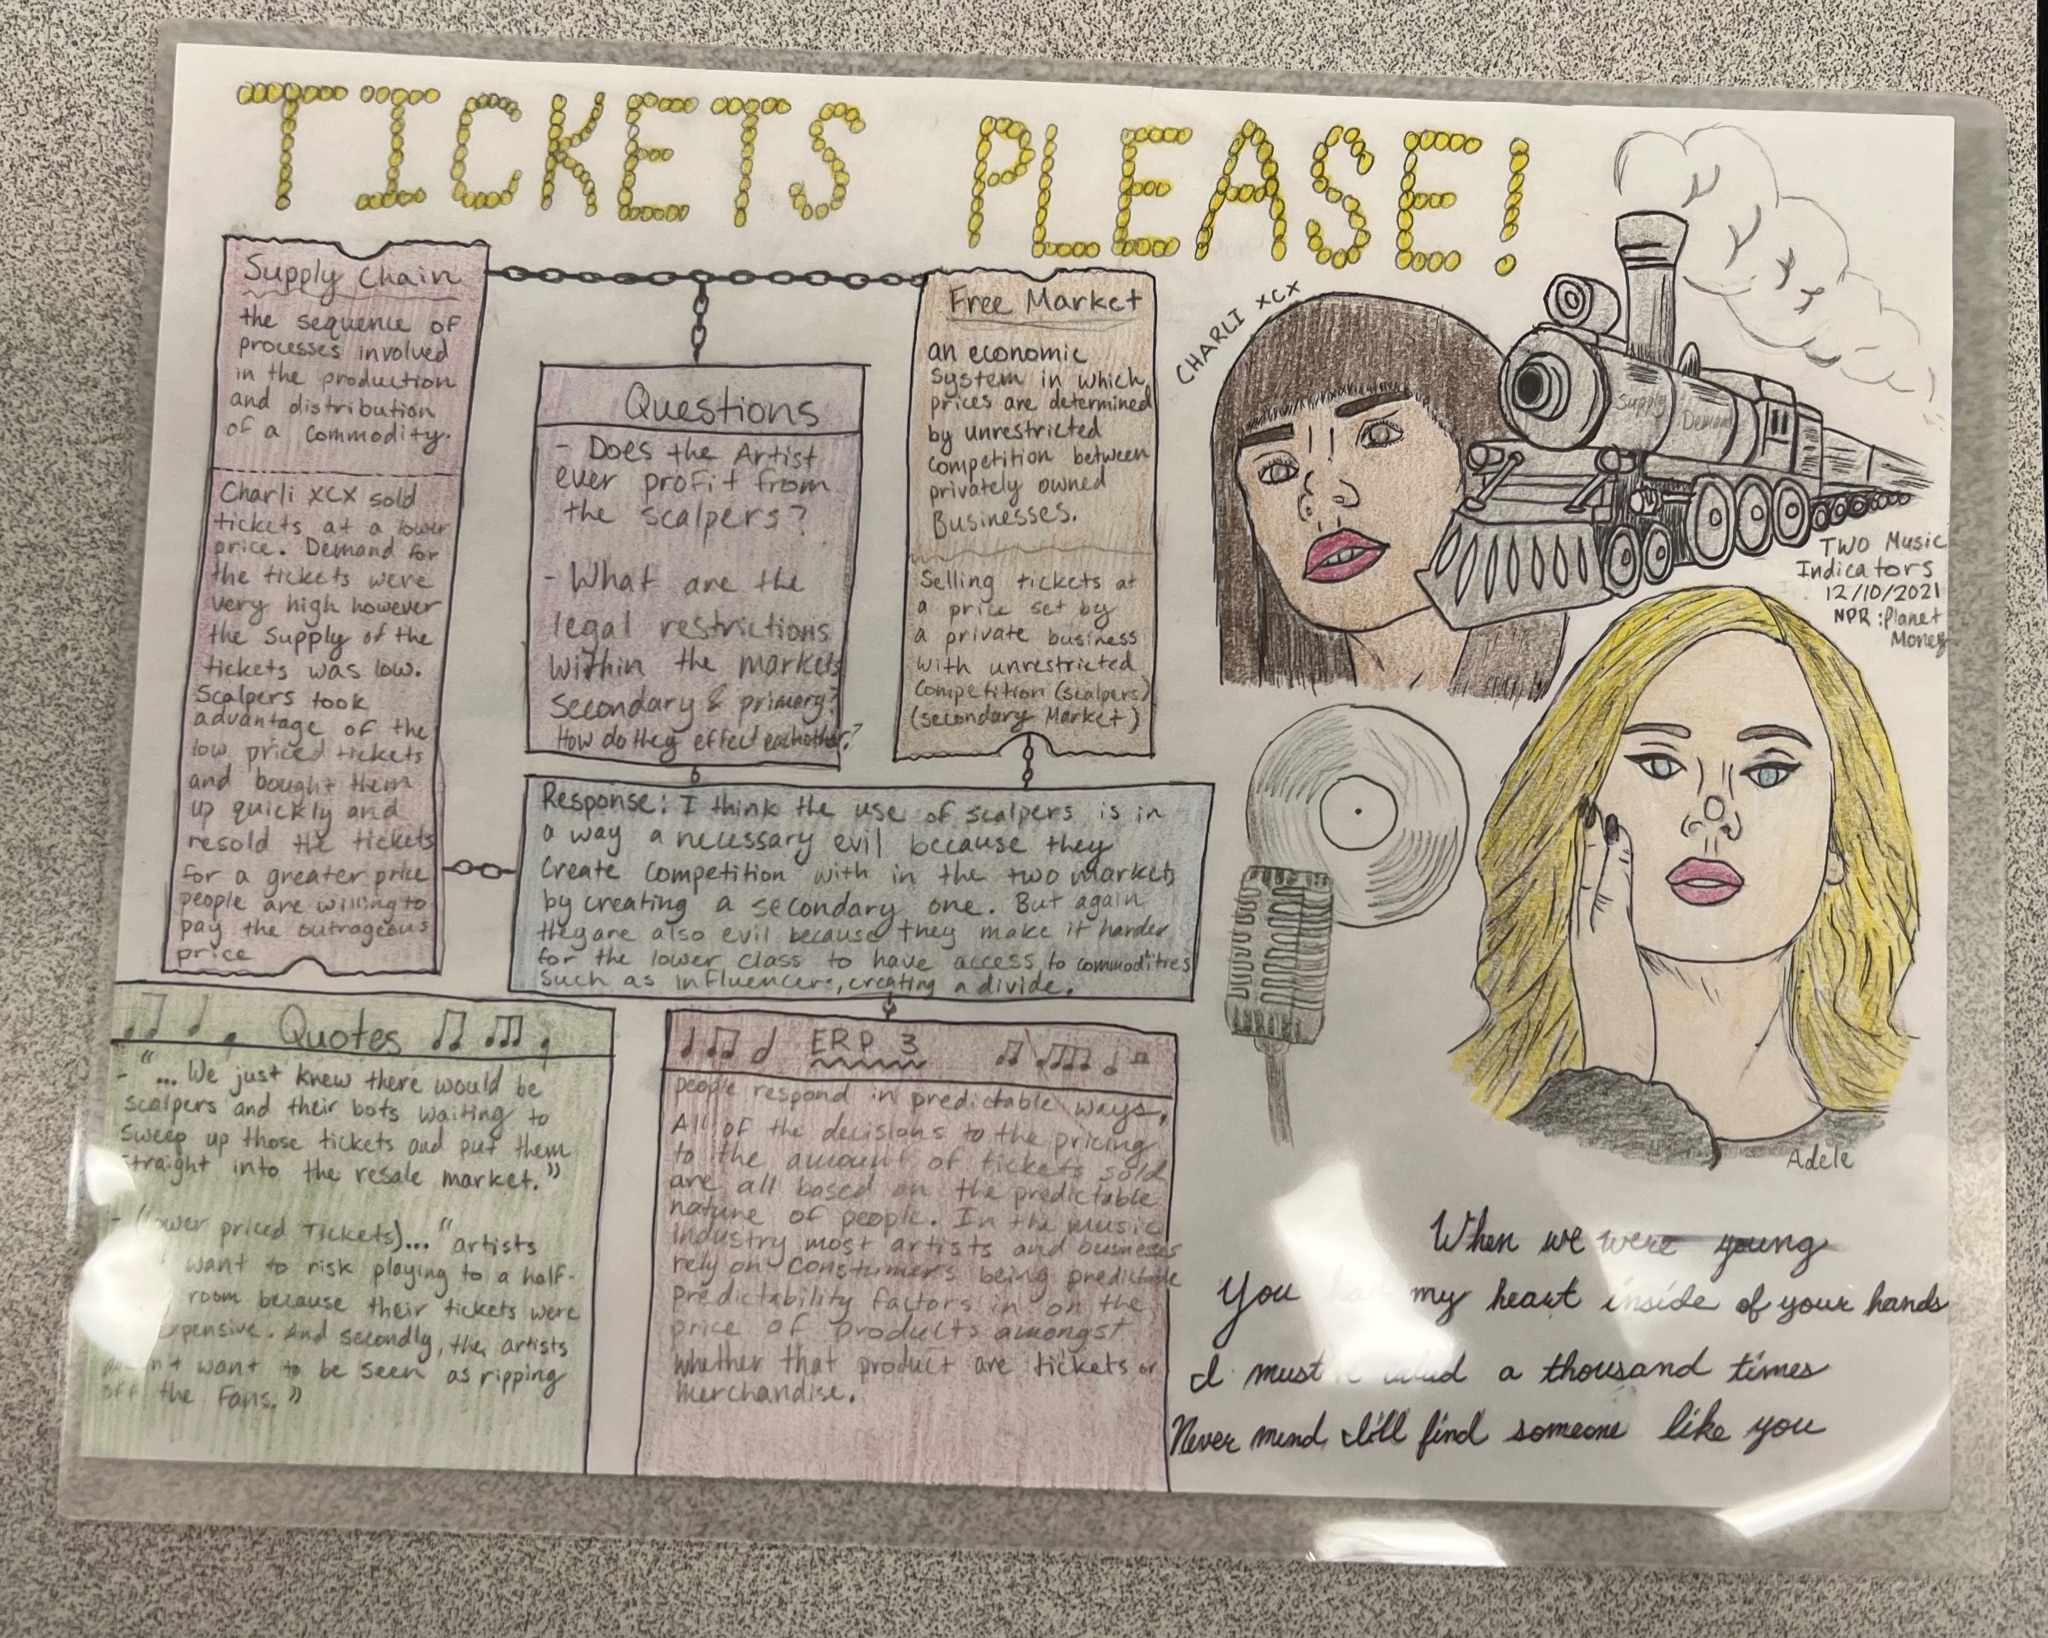 TICKETS PLEASE!
Supply Chain
the sequence of
processes involved
in the production
and distribution
of a commodity.
Charli xcx sold
tickets at a lower
price. Demand for
the tickets were
very high however
the supply of the
tickets was low.
Scalpers took
advantage of the
low priced tickets
and bought them
up quickly and
resold the tickets
for a greater price
people are willing to
pay the outrageous
price
Questions
- Does the Artist
ever profit from
the scalpers?
- What are the
legal restrictions
within the markets
secondary & primary?
How do they effect eachother?
Free Market
an economic
system in which
prices are determined
by unrestricted
competition between
privately owned
Businesses.
Selling tickets at
a price set by
a private business
with unrestricted
Competition (scalpers)
(secondary Market)
Response: I think the use of scalpers is in
a way a necessary evil because they
create competition with in the two markets
by creating a secondary one. But again
they are also evil because they make it harder
for the lower class to have access to commodities
such as influencers, creating a divide.
Quotes
- "... We just knew there would be
scalpers and their bots waiting to
sweep up those tickets and put them
straight into the resale market."
- (lower priced Tickets)... "artists
want to risk playing to a half-
room because their tickets were
And secondly, the artists
want to be seen as ripping
off the fans."
ERP 3
people respond in predictable ways.
All of the decisions to the pricing
to the amount of tickets sold
are all based on the predictable
nature of people. In the music
industry most artists and busineses
rely on constumers being predictable
predictability factors in on the
price of products amongst
whether that product are tickets or
merchandise.
CHARLI XCX
Supply
Demand
TWO Music
Indicators
12/10/2021
NPR: Planet
Money
Adele
When we were young
You my heart inside of your hands
I must a thousand times
Never mind, I'll find someone like you